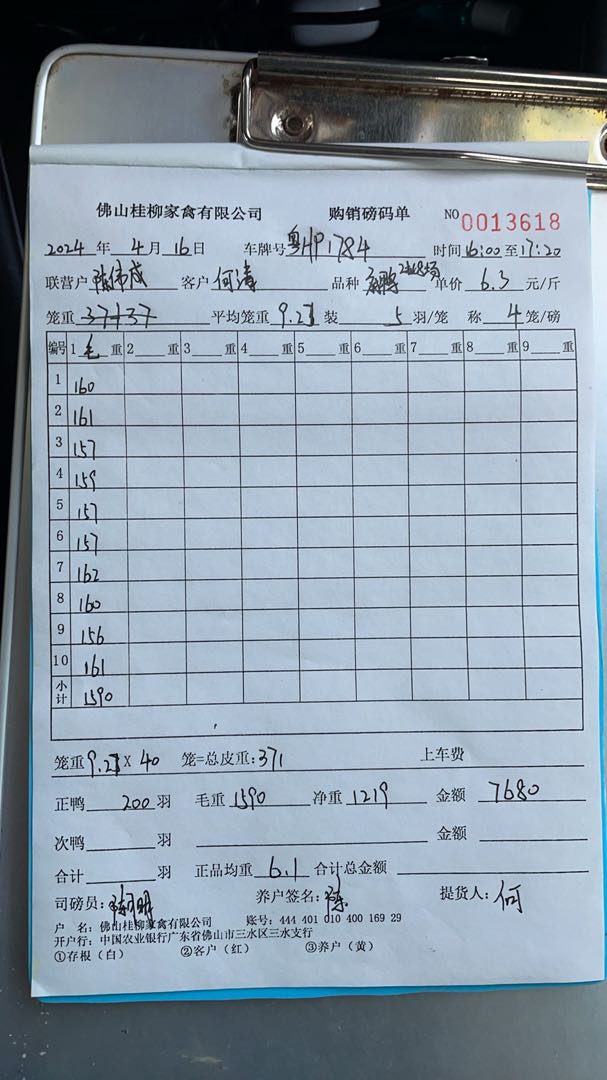 佛山桂柳家禽有限公司 购销磅码单 NO 0013618
2024 年 4 月 16 日 车牌号 粤HP1784 时间 16:00 至 17:20
联营户 陈伟成 客户 何 品种 单价 6.3 元/斤
笼重 37+37 平均笼重 9.27 装 5 羽/笼 称 4 笼/磅
编号 1 毛 重 2 重 3 重 4 重 5 重 6 重 7 重 8 重 9 重
1 160
2 161
3 157
4 159
5 157
6 157
7 162
8 160
9 156
10 161
小计 1590
笼重 9.27 X 40 笼=总皮重: 371 上车费
正鸭 200 羽 毛重 1590 净重 1219 金额 7680
次鸭 羽 金额
合计 羽 正品均重 6.1 合计总金额
司磅员: 养户签名: 陈 提货人: 何
户 名: 佛山桂柳家禽有限公司 账号: 444 401 010 400 169 29
开户行: 中国农业银行广东省佛山市三水区三水支行
①存根（白） ②客户（红） ③养户（黄）